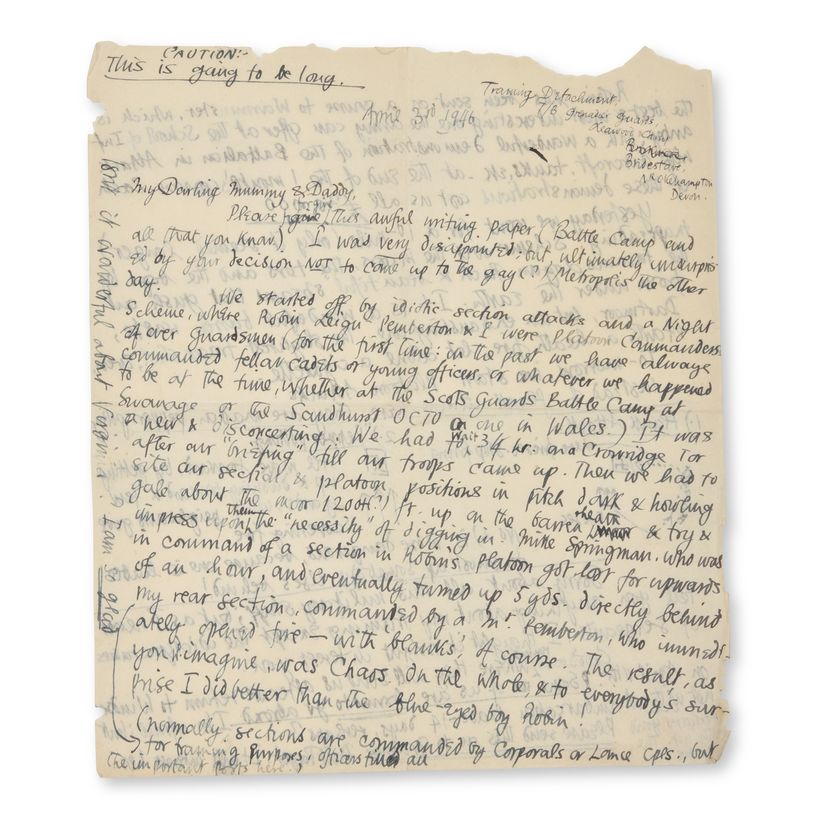 CAUTION:-
This is going to be long.
Training Detachment,
Grenadier Guards,
Bridestowe,
Nr Okehampton
Devon.
April 3rd 1946
My Darling Mummy & Daddy,
Please forgive this awful writing paper (Battle Camp and
all that you know.) I was very disappointed: but ultimately unsurpris-
ed by your decision NOT to come up to the gay (?) Metropolis the other
day.
We started off by idiotic section attacks and a Night
Scheme, where Robin Leigh Pemberton & I were Platoon Commanders
of ever Guardsmen (for the first time: in the past we have always
commanded fellow cadets or young officers or whatever we happened
to be at the time, whether at the Scots Guards Battle Camp at
Swanage or the Sandhurst OCTU or one in Wales.) It was
a new & disconcerting. We had to wait 3/4 hr. on a Crowridge Tor
after our "briefing" till our troops came up. Then we had to
site our section & platoon positions in pitch dark & howling
gale about the moor 1200 (?) ft. up on the barren heath & try &
impress upon them the "necessity" of digging in. Mike Springman, who was
in command of a section in Robin's platoon got lost for upwards
of an hour, and eventually turned up 5 yds. directly behind
my rear section, commanded by a Mr. Pemberton, who immedi-
ately opened fire — with 'blanks', of course. The result, as
you'll imagine, was Chaos. On the whole & to everybody's sur-
prise I did better than the blue-eyed boy Robin!
(normally, sections are commanded by Corporals or Lance Cpls., but
for training purposes, officers filled all
the important posts here.)
Isn't it wonderful about Virginia? I am so glad